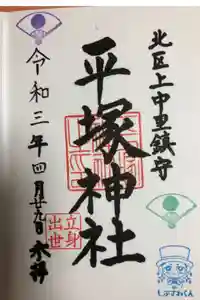 北区上中里鎮守
平塚神社
立身
出世
令和三年四月廿九日 参拝
しぶさわくん